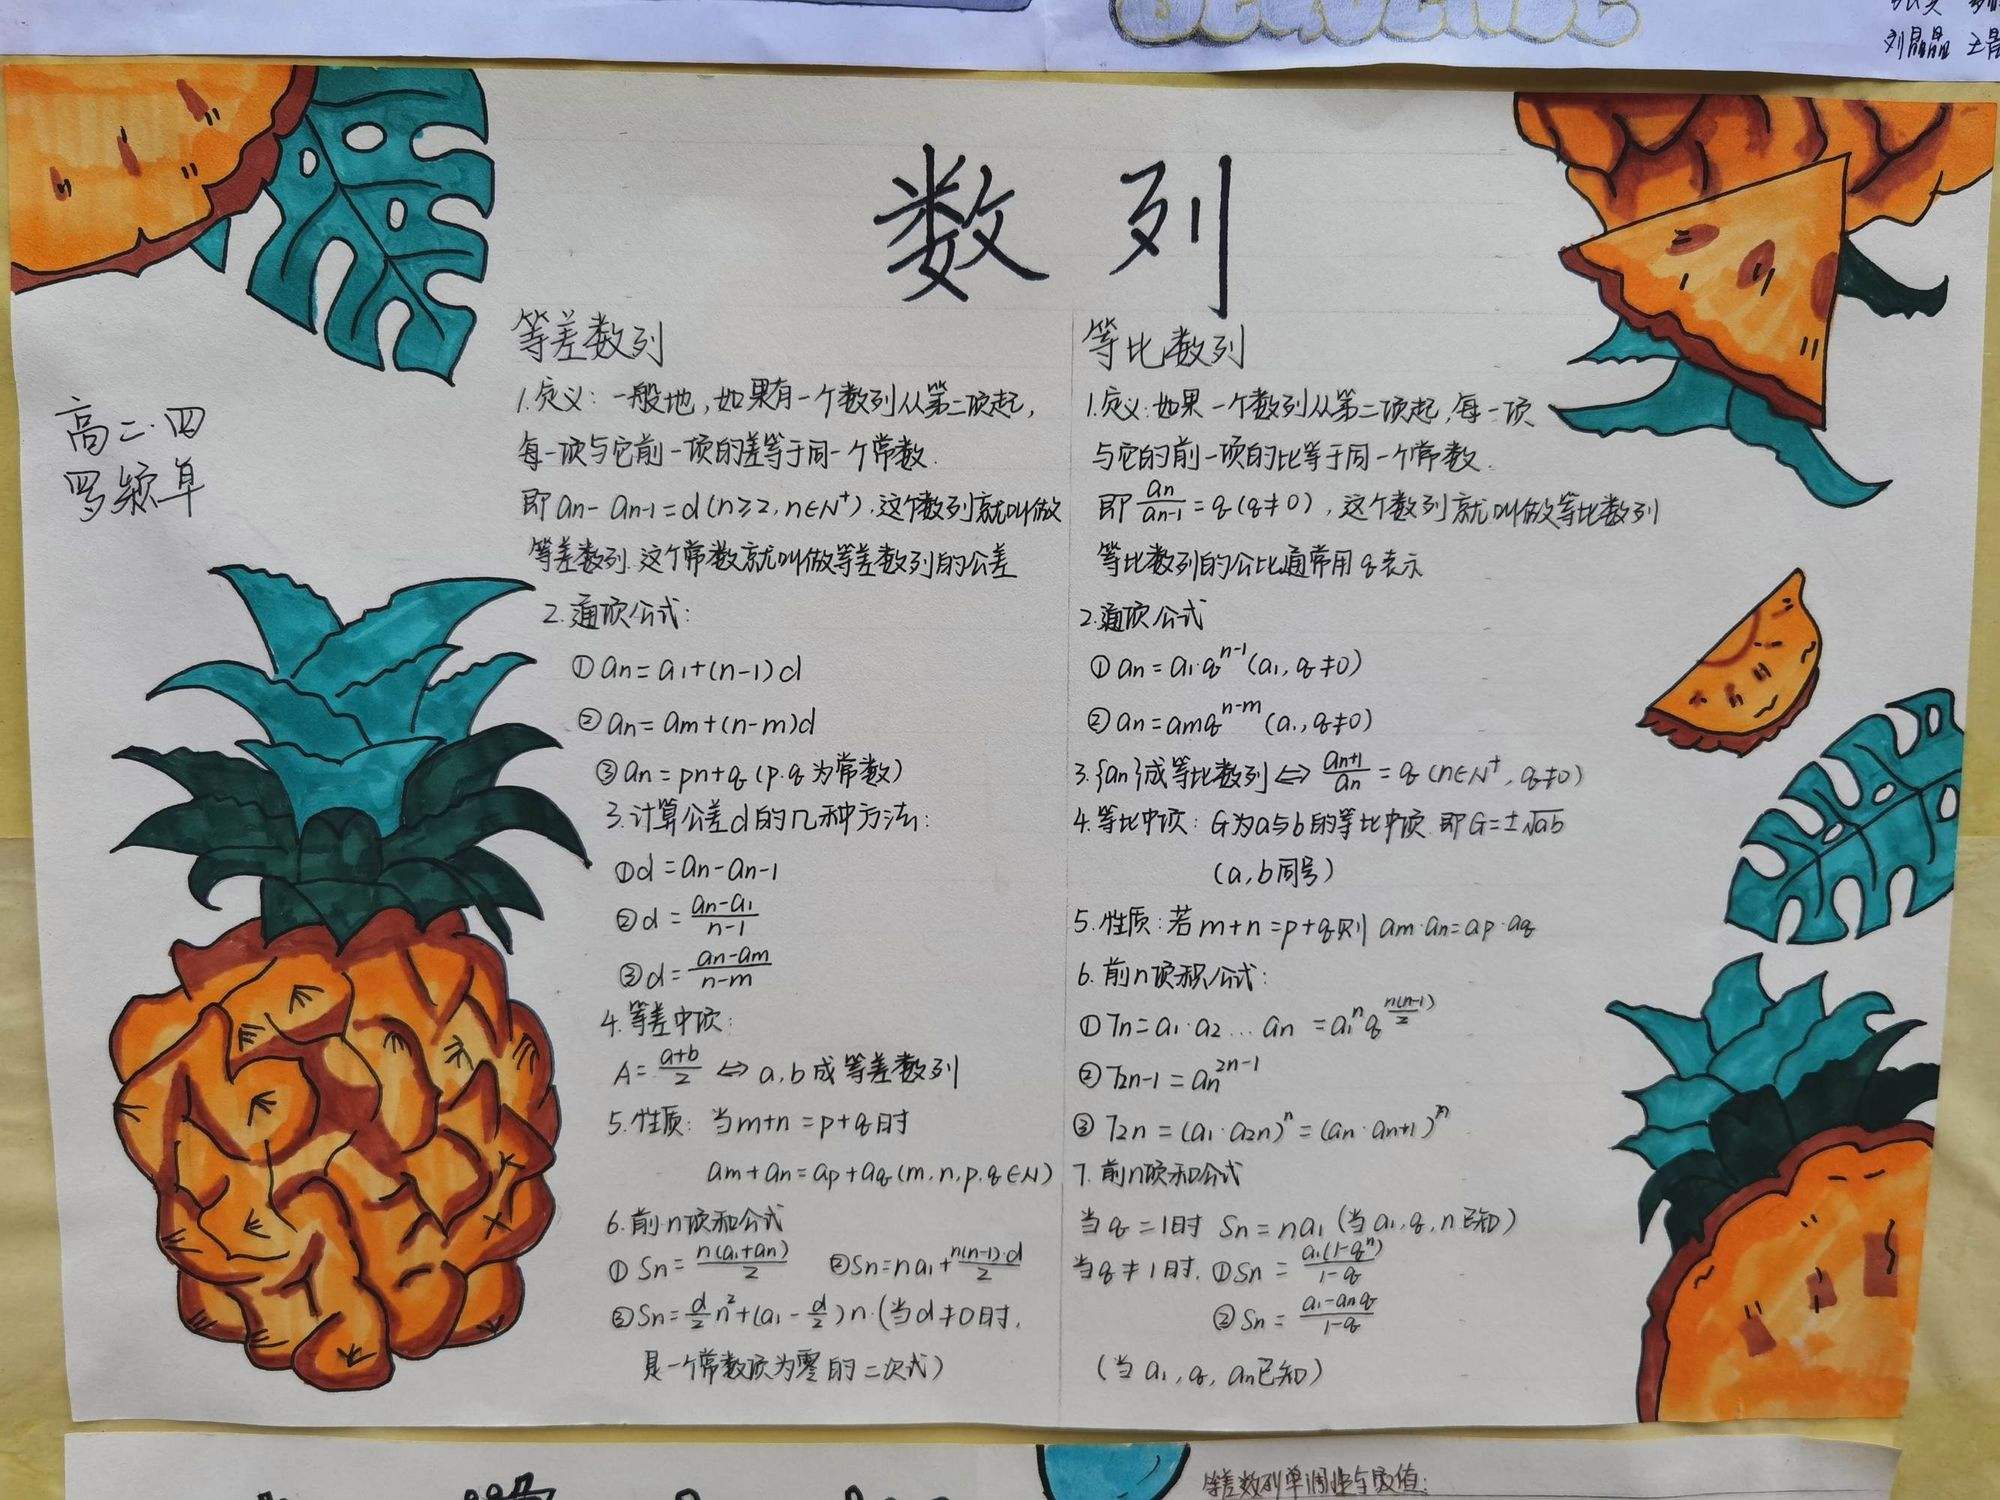 刘晶晶
数列
高二·四
罗颖卓
等差数列
1.定义：一般地，如果有一个数列从第二项起，
每一项与它前一项的差等于同一个常数.
即 an - an-1 = d (n≥2, n∈N⁺), 这个数列就叫做
等差数列. 这个常数就叫做等差数列的公差
2.通项公式:
① an = a1+(n-1)d
② an = am+(n-m)d
③ an = pn+q (p.q为常数)
3.计算公差d的几种方法:
① d = an - an-1
② d = (an-a1)/(n-1)
③ d = (an-am)/(n-m)
4.等差中项:
A = (a+b)/2 ⇔ a,b成等差数列
5.性质: 当m+n=p+q时
am+an=ap+aq (m,n,p,q∈N)
6.前n项和公式
① Sn = n(a1+an)/2 ② Sn = na1 + n(n-1)·d/2
③ Sn = d/2 n² + (a1 - d/2)n. (当d≠0时,
是一个常数项为零的二次式)
等比数列
1.定义:如果一个数列从第二项起,每一项
与它的前一项的比等于同一个常数.
即 an/an-1 = q (q≠0), 这个数列就叫做等比数列
等比数列的公比通常用q表示
2.通项公式
① an = a1·q^(n-1) (a1, q≠0)
② an = amq^(n-m) (a1, q≠0)
3.{an}成等比数列 ⇔ an+1/an = q (n∈N⁺, q≠0)
4.等比中项: G为a与b的等比中项. 即G=±√ab
(a,b同号)
5.性质:若m+n=p+q则 am·an=ap·aq
6.前n项积公式:
① Tn = a1·a2...an = a1^n q^(n(n-1)/2)
② T2n-1 = an^(2n-1)
③ T2n = (a1·a2n)^n = (an·an+1)^n
7.前n项和公式
当q=1时 Sn = na1 (当a1,q,n已知)
当q≠1时, ① Sn = a1(1-q^n)/(1-q)
② Sn = (a1-anq)/(1-q)
(当a1, q, an已知)
等差数列单调性与最值: